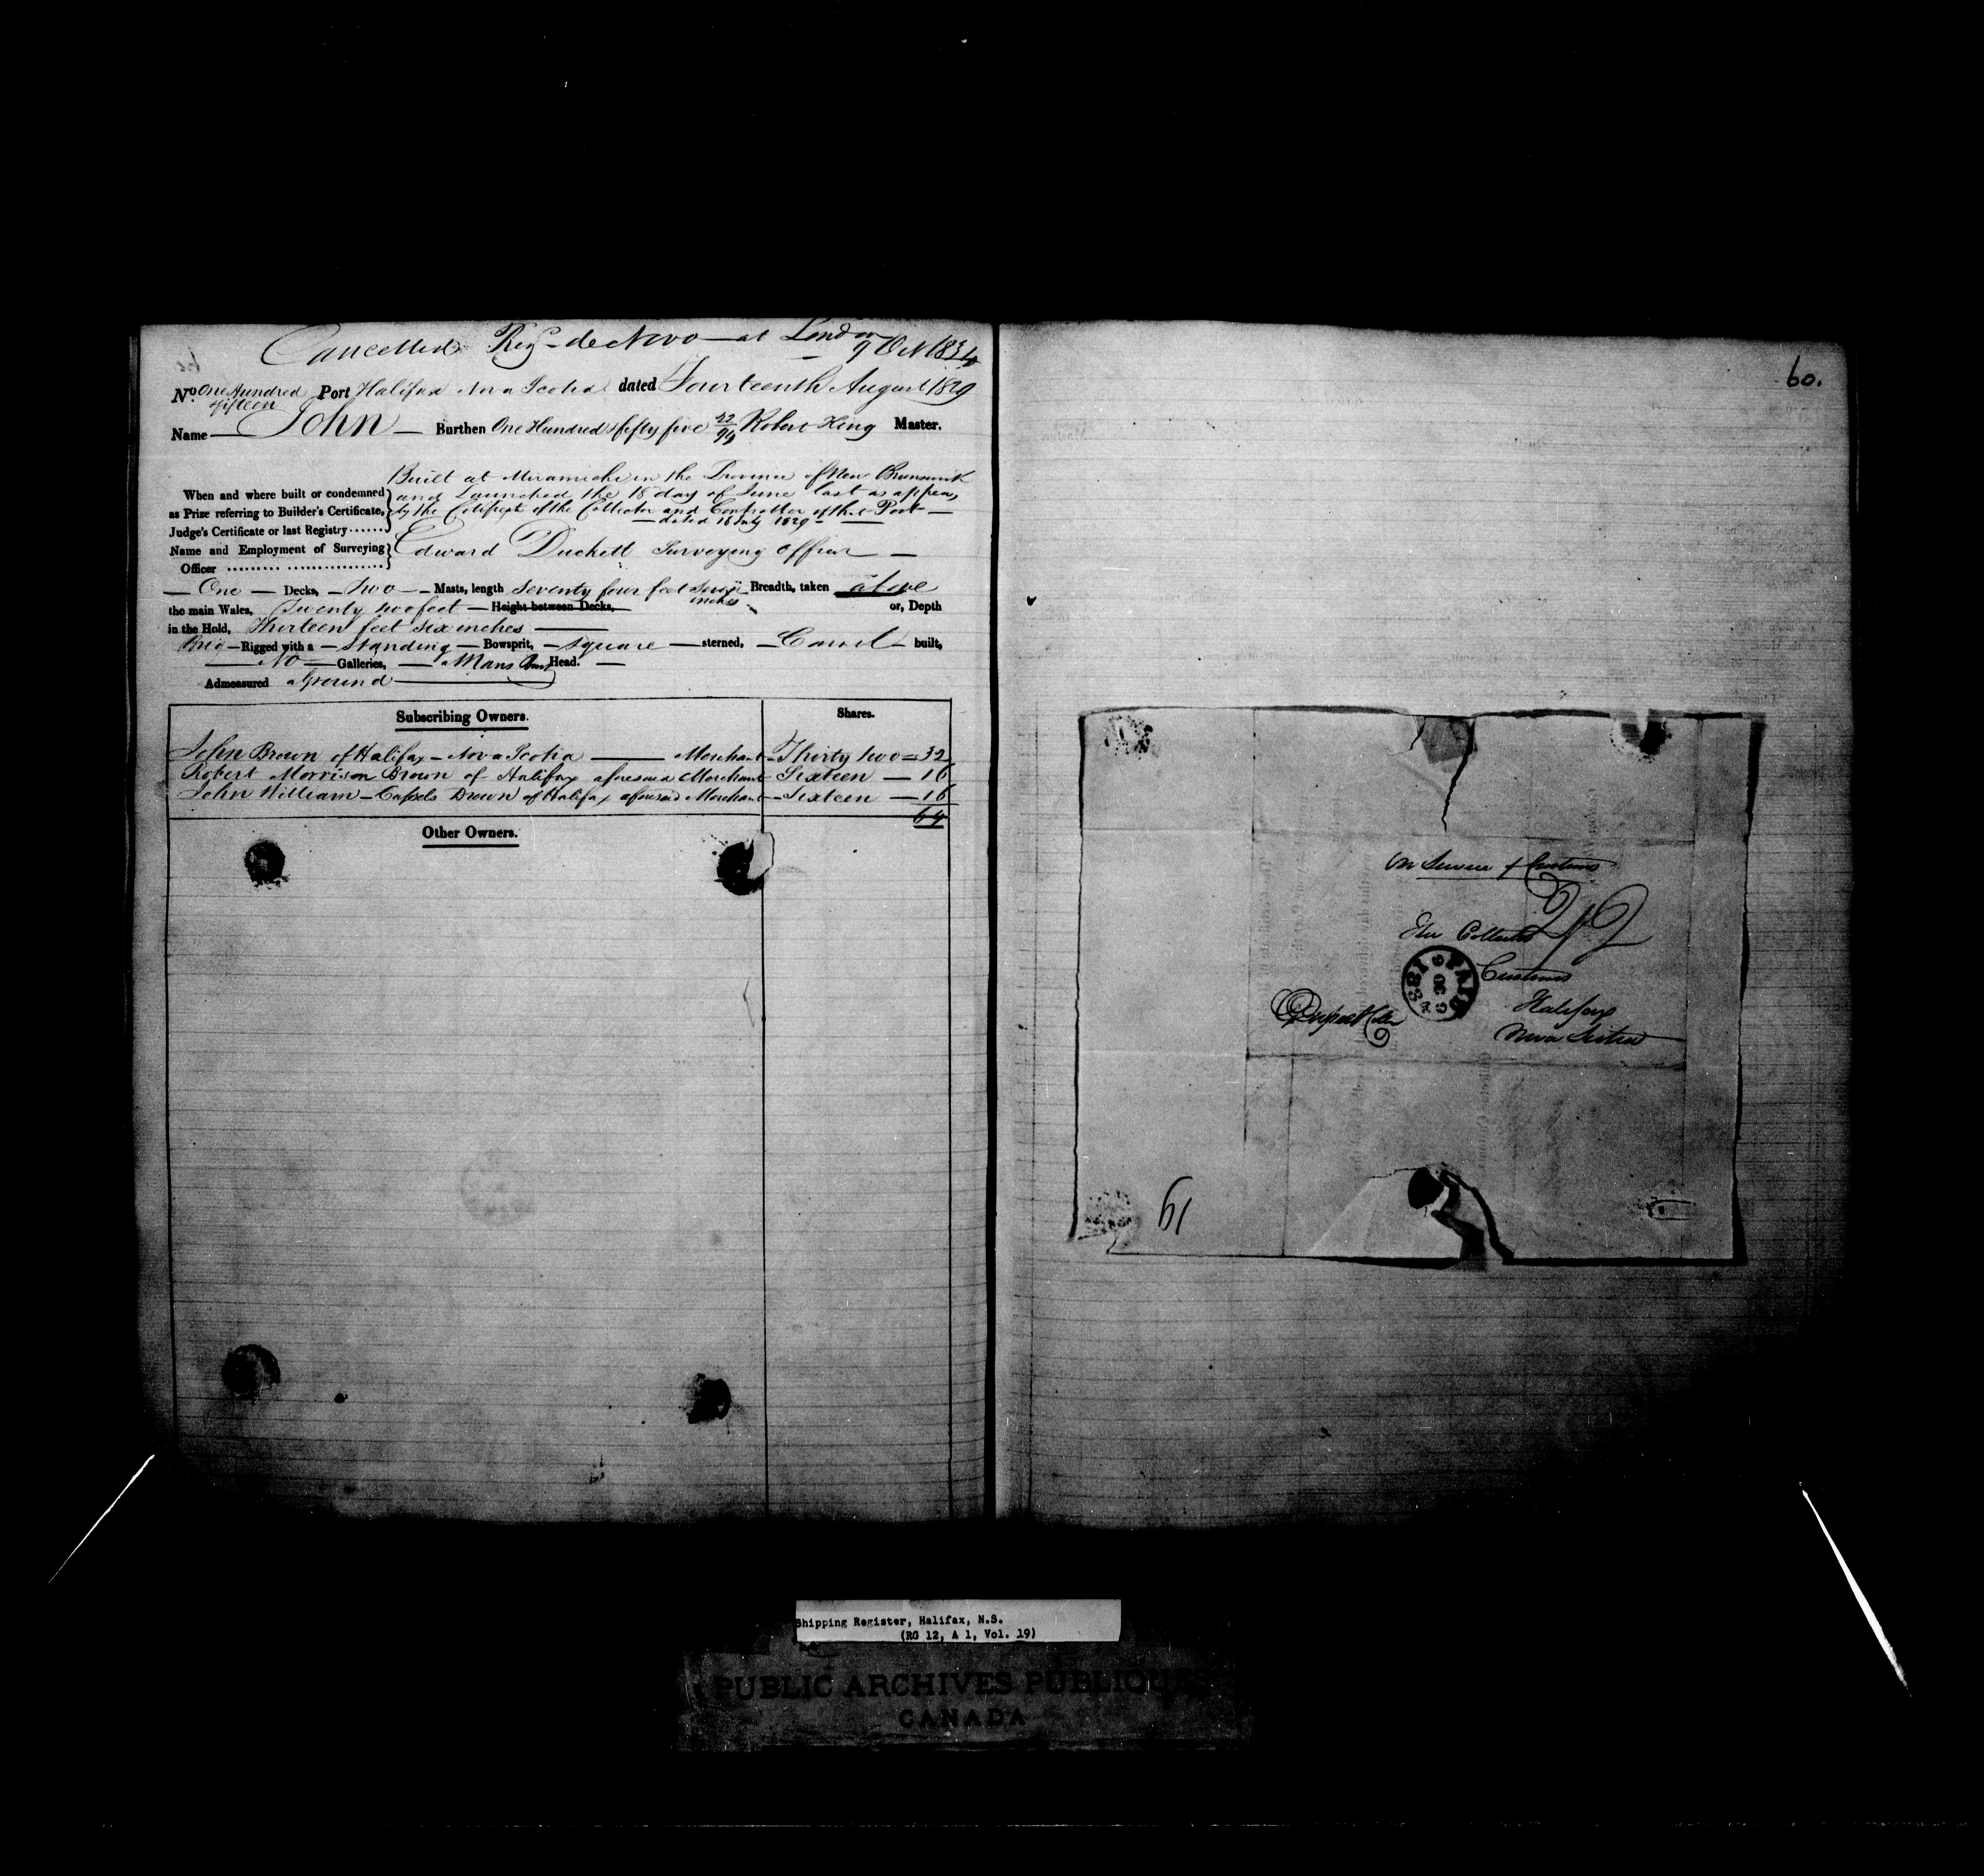 Cancelled Reg de Novo at London
9 Oct 1834
No. One Hundred fifteen Port Halifax Nova Scotia dated Fourteenth August 1829
Name John Burthen One Hundred fifty five 22/94 Robert King Master.
Built at Miramichi in the Province of New Brunswick
When and where built or condemned and Launched the 18 day of June last as appears
as Prize referring to Builder's Certificate, by the Certificate of the Collector and Controller of that Port
Judge's Certificate or last Registry dated 16 July 1829
Name and Employment of Surveying Officer Edward Duckett Surveying Officer
One Decks, two Masts, length Seventy four feet Seven inches Breadth, taken above
the main Wales, Twenty two feet Height between Decks, or, Depth
in the Hold, Thirteen feet six inches
Brig Rigged with a Standing Bowsprit, square sterned, Carvel built,
No Galleries, Mans Bust Head.
Admeasured aground
Subscribing Owners. Shares.
John Brown of Halifax Nova Scotia Merchant Thirty two = 32
Robert Morrison Brown of Halifax aforesaid Merchant Sixteen 16
John William Cassels Brown of Halifax aforesaid Merchant Sixteen 16
64
Other Owners.
60.
On Service of Customs
The Collector
Customs
Halifax
Nova Scotia
PAID
9 OC 9
1834
61
Shipping Register, Halifax, N.S.
(RG 12, A 1, Vol. 19)
PUBLIC ARCHIVES PUBLIQUES
CANADA